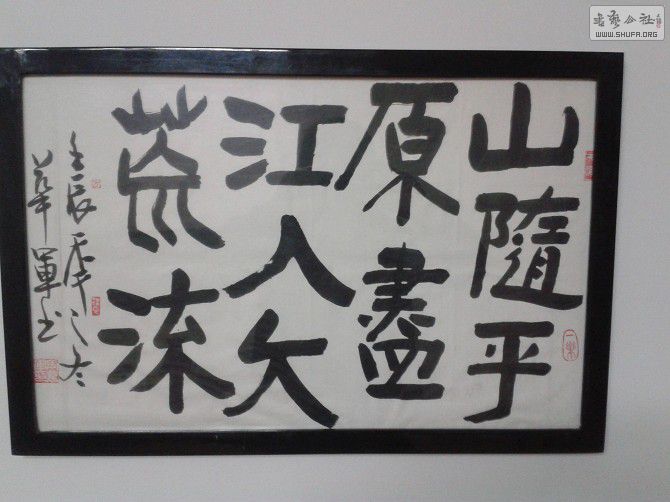 山隨平
原盡
江入大
荒流
壬辰 之冬
華軍书
書藝公社
WWW.SHUFA.ORG